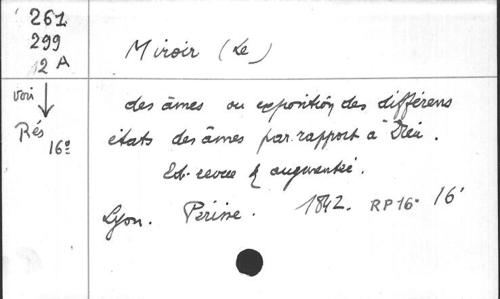 261
299
12 A
voir
Rés
16º
Miroir (Le)
des âmes ou exposition des différens
états des âmes par rapport à Dieu.
Ed. revue & augmentée.
Lyon. Périsse. 1842. RP16º 16'